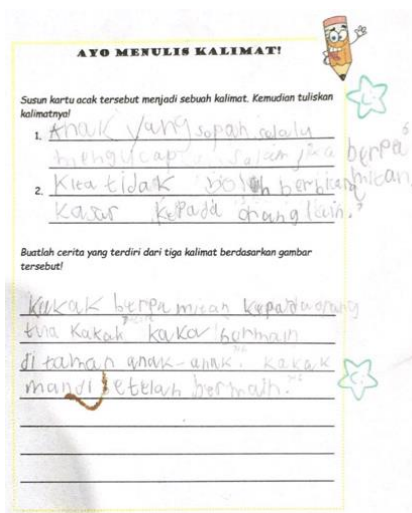 AYO MENULIS KALIMAT!
Susun kartu acak tersebut menjadi sebuah kalimat. Kemudian tuliskan
kalimatnya!
1. Anak yang sopan selalu
mengucap salam jika berpa
mitan.
2. Kita tidak boleh berbicara
kasar kepada orang lain.
Buatlah cerita yang terdiri dari tiga kalimat berdasarkan gambar
tersebut!
Kakak berpamitan kepada orang
tua kakak bermain
di taman anak-anak. kakak
mandi setelah bermain.